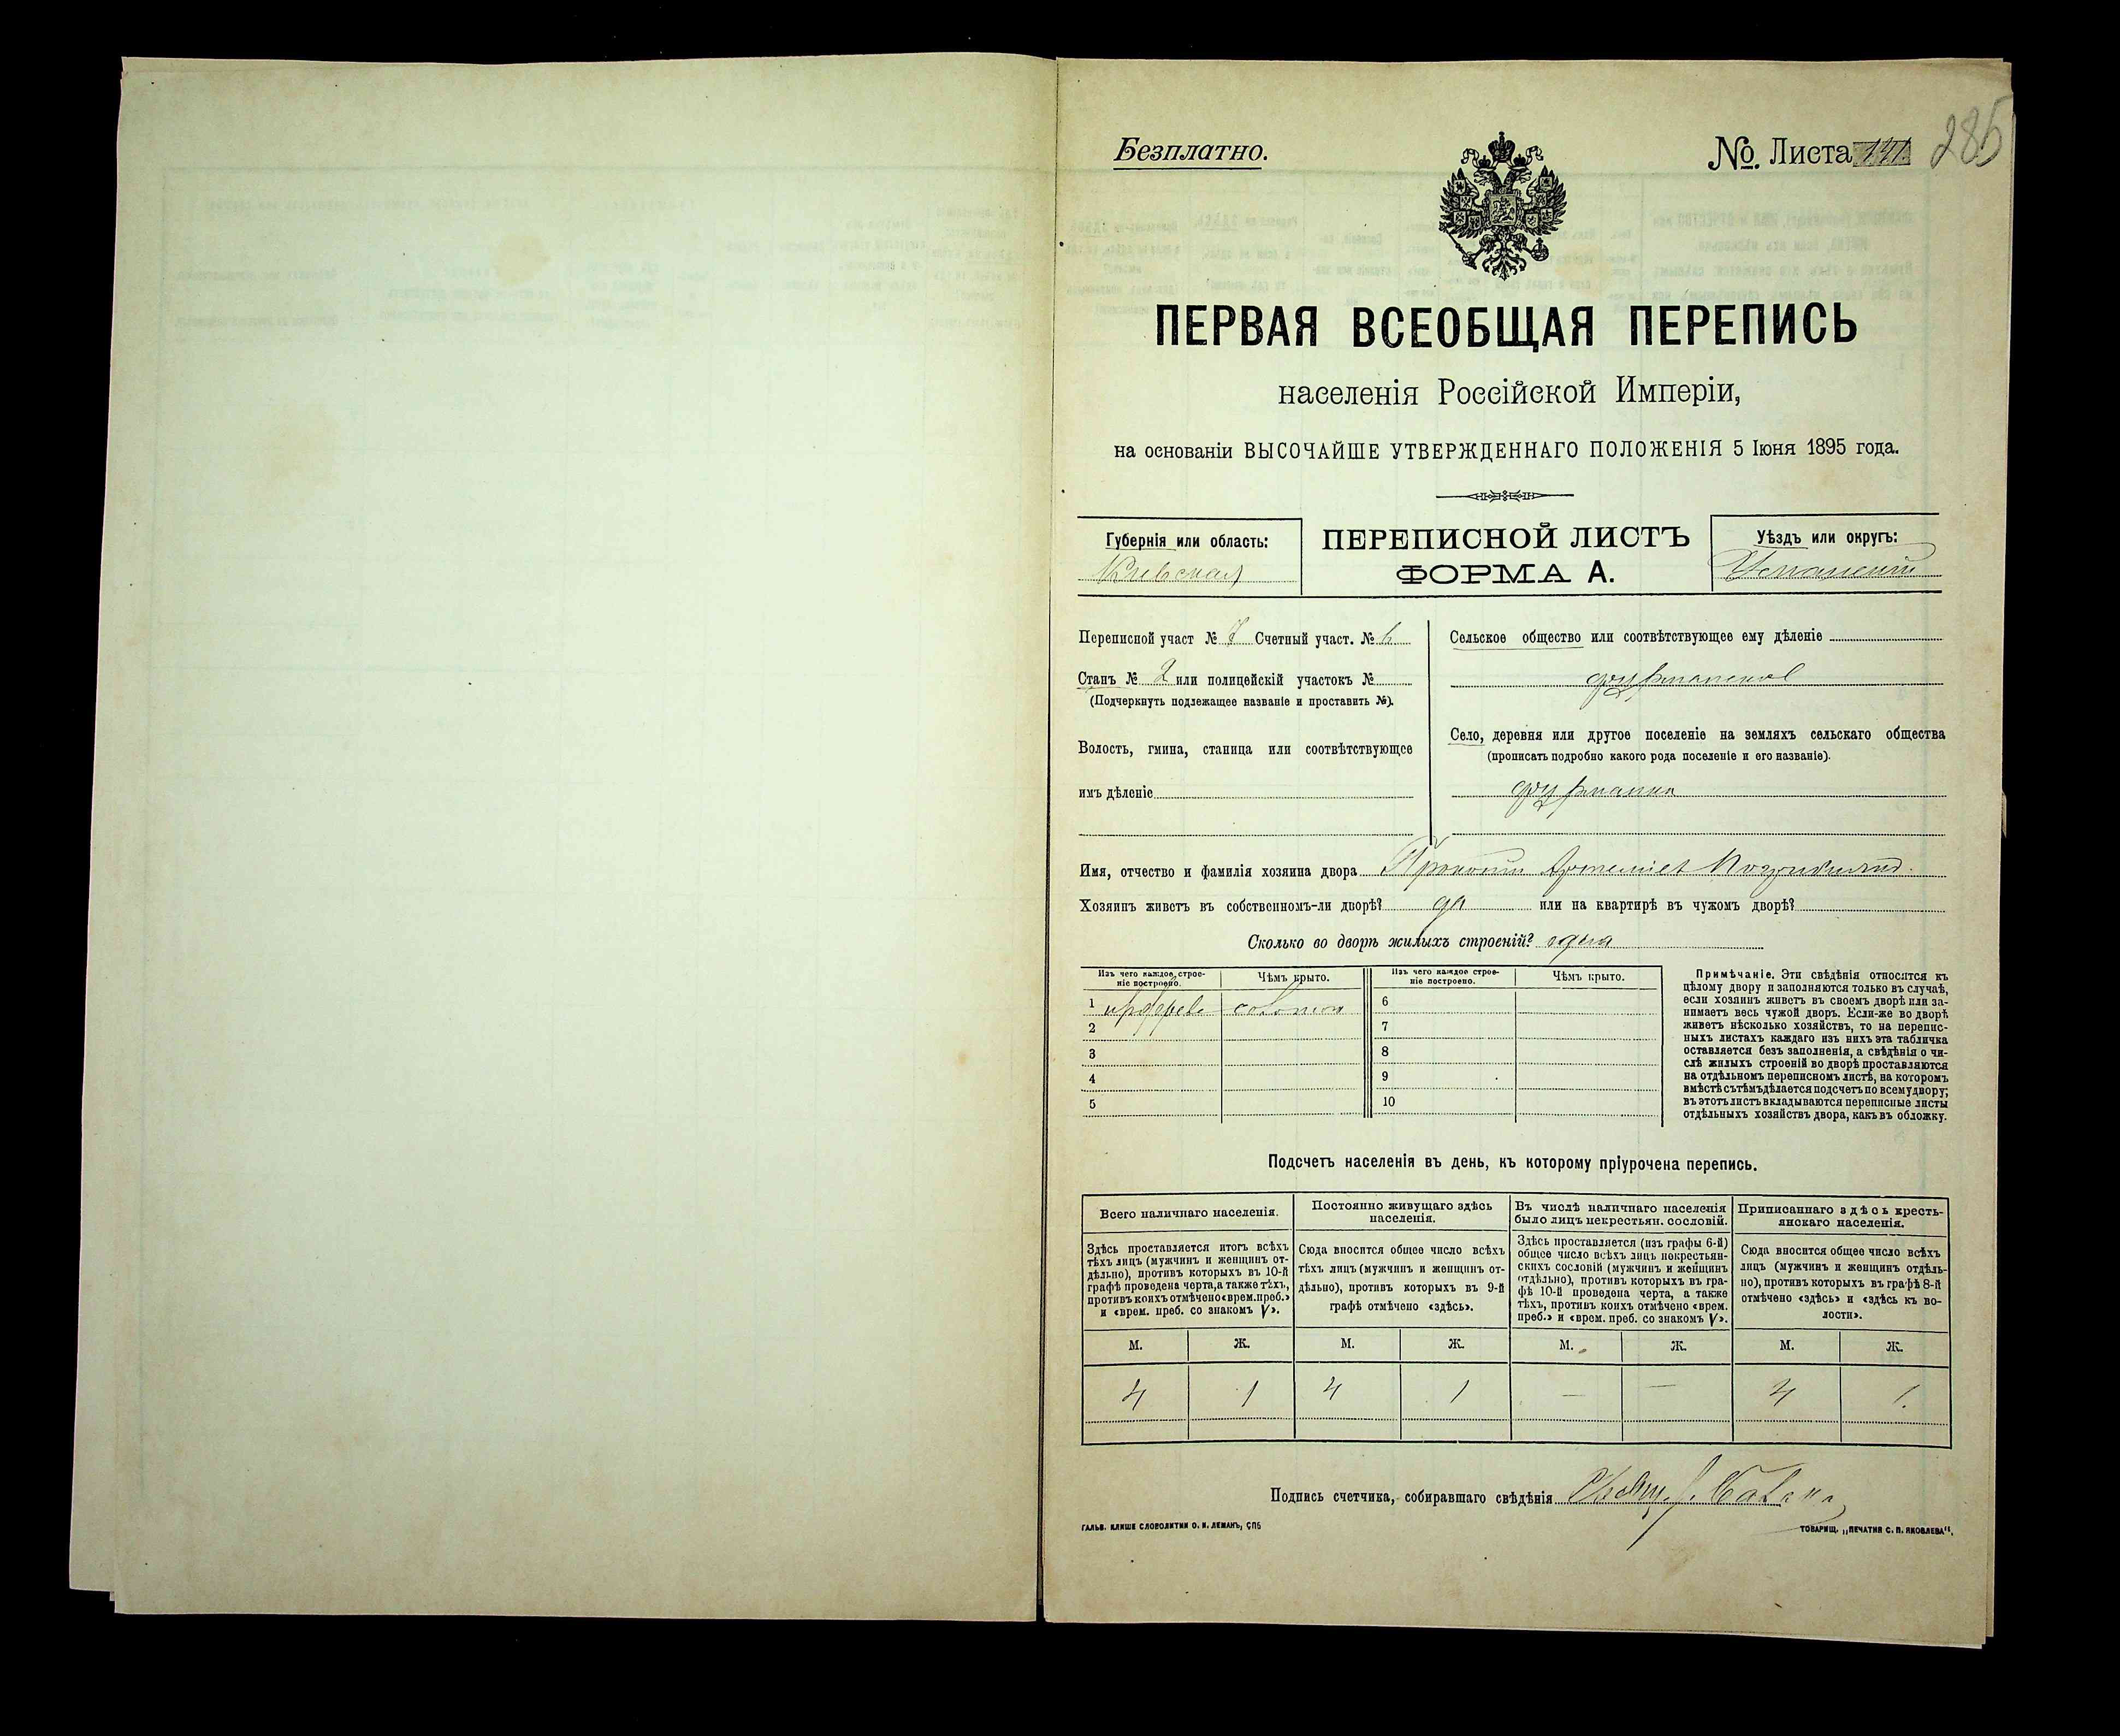 Безплатно.
№ Листа 141.
285
ПЕРВАЯ ВСЕОБЩАЯ ПЕРЕПИСЬ
населенія Россійской Имперіи,
на основаніи ВЫСОЧАЙШЕ УТВЕРЖДЕННАГО ПОЛОЖЕНІЯ 5 Іюня 1895 года.
Губернія или область:
Кіевская
ПЕРЕПИСНОЙ ЛИСТЪ
ФОРМА А.
Уѣздъ или округъ:
Уманскій
Переписной участ № 7 Счетный участ. № 6
Станъ № 2 или полицейскій участокъ №
(Подчеркнуть подлежащее названіе и проставить №).
Волость, гмина, станица или соотвѣтствующее
имъ дѣленіе
Сельское общество или соотвѣтствующее ему дѣленіе
фурманское
Село, деревня или другое поселеніе на земляхъ сельскаго общества
(прописать подробно какого рода поселеніе и его названіе).
фурманка
Имя, отчество и фамилія хозяина двора Прокопій
Хозяинъ живетъ въ собственномъ-ли дворѣ? да или на квартирѣ въ чужомъ дворѣ?
Сколько во дворѣ жилыхъ строеній? одна
Изъ чего каждое строеніе построено.
Чѣмъ крыто.
Изъ чего каждое строеніе построено.
Чѣмъ крыто.
1 соломой
2
3
4
5
6
7
8
9
10
Примѣчаніе. Эти свѣдѣнія относятся къ
цѣлому двору и заполняются только въ случаѣ,
если хозяинъ живетъ въ своемъ дворѣ или за-
нимаетъ весь чужой дворъ. Если-же во дворѣ
живетъ нѣсколько хозяйствъ, то на перепис-
ныхъ листахъ каждаго изъ нихъ эта табличка
оставляется безъ заполненія, а свѣдѣнія о чи-
слѣ жилыхъ строеній во дворѣ проставляются
на отдѣльномъ переписномъ листѣ, на которомъ
вмѣстѣ съ тѣмъ дѣлается подсчетъ по всему двору;
въ этотъ листъ вкладываются переписные листы
отдѣльныхъ хозяйствъ двора, какъ въ обложку.
Подсчетъ населенія въ день, къ которому пріурочена перепись.
Всего наличнаго населенія.
Здѣсь проставляется итогъ всѣхъ
тѣхъ лицъ (мужчинъ и женщинъ от-
дѣльно), противъ которыхъ въ 10-й
графѣ проведена черта, а также тѣхъ,
противъ коихъ отмѣчено «врем. преб.»
и «врем. преб. со знакомъ V».
Постоянно живущаго здѣсь
населенія.
Сюда вносится общее число всѣхъ
тѣхъ лицъ (мужчинъ и женщинъ от-
дѣльно), противъ которыхъ въ 9-й
графѣ отмѣчено «здѣсь».
Въ числѣ наличнаго населенія
было лицъ некрестьян. сословій.
Здѣсь проставляется (изъ графы 6-й)
общее число всѣхъ лицъ некрестьян-
скихъ сословій (мужчинъ и женщинъ
отдѣльно), противъ которыхъ въ гра-
фѣ 10-й проведена черта, а также
тѣхъ, противъ коихъ отмѣчено «врем.
преб.» и «врем. преб. со знакомъ V».
Приписаннаго здѣсь кресть-
янскаго населенія.
Сюда вносится общее число всѣхъ
лицъ (мужчинъ и женщинъ отдѣль-
но), противъ которыхъ въ графѣ 8-й
отмѣчено «здѣсь» и «здѣсь къ во-
лости».
М. Ж. М. Ж. М. Ж. М. Ж.
4 1 4 1 — — 4 1.
Подпись счетчика, собиравшаго свѣдѣнія
ГАЛЬВ. КЛИШЕ СЛОВОЛИТНИ О. И. ЛЕМАНЪ, СПБ
ТОВАРИЩ. „ПЕЧАТНЯ С. П. ЯКОВЛЕВА“.